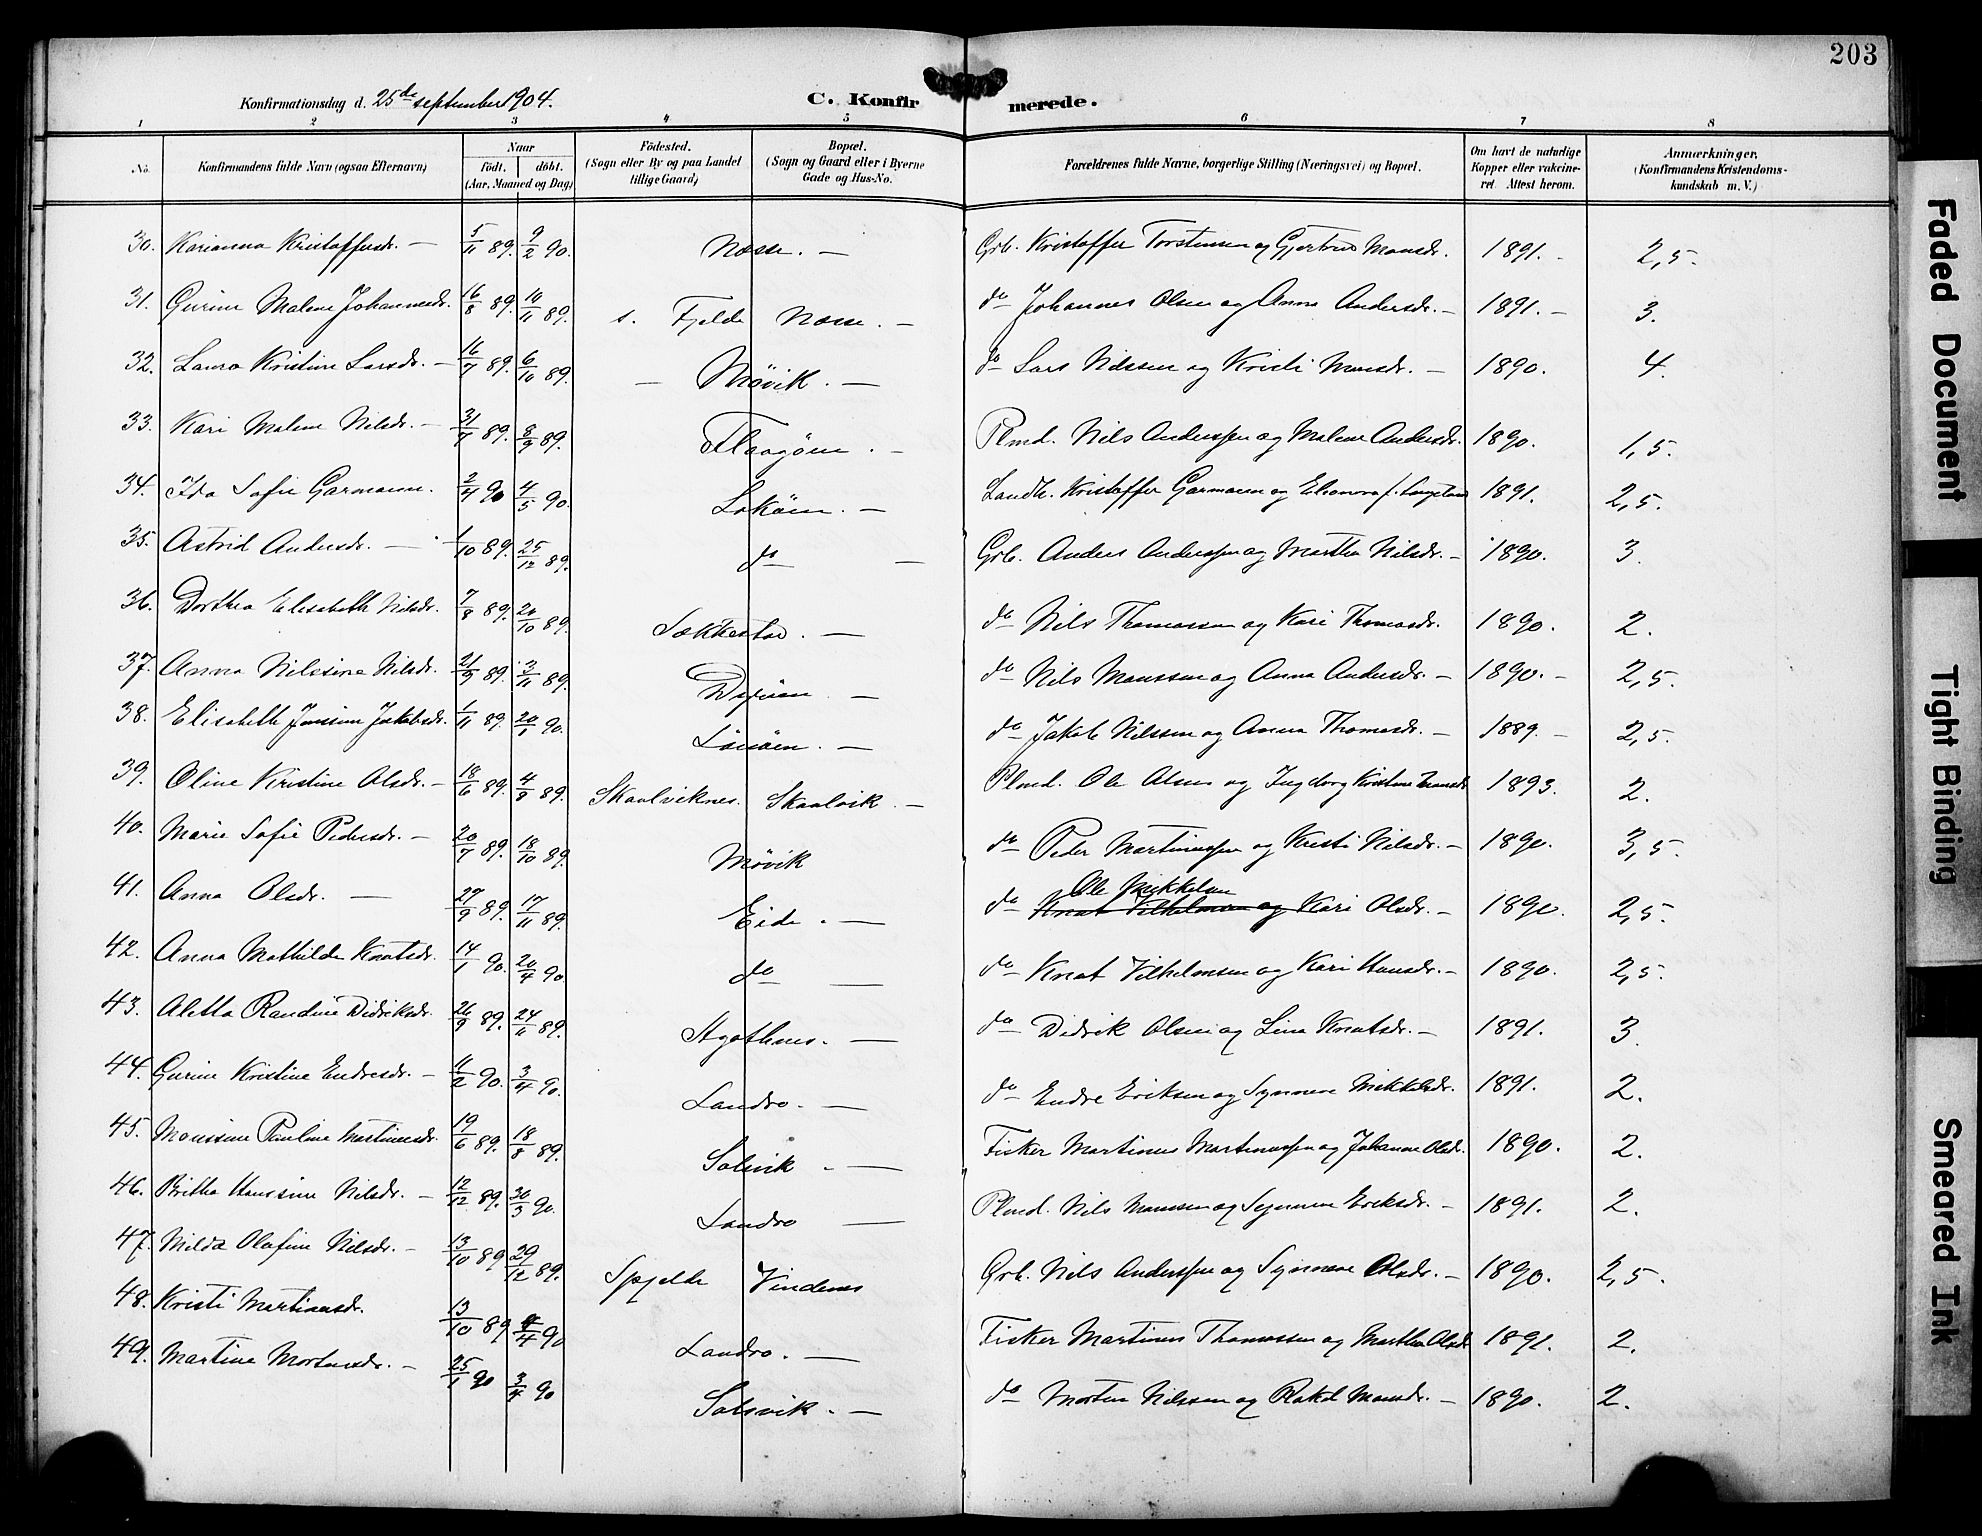 203
Konfirmationsdag d. 25de september 1904.
C. Konfirmerede.
1 2 3 4 5 6 7 8
No. Konfirmandens fulde Navn (ogsaa Efternavn) Naar födt. döbt. (Aar, Maaned og Dag) Födested. (Sogn eller By og paa Landet tillige Gaard) Bopæl. (Sogn og Gaard eller i Byerne Gade og Hus-No. Forældrenes fulde Navne, borgerlige Stilling (Næringsvei) og Bopæl. Om havt de naturlige Kopper eller vakcineret. Attest herom. Anmærkninger. (Konfirmandens Kristendomskundskab m. V.)
30. Karianna Kristoffersdr. — 5/11 89. 9/2 90. Næsse. — Grb. Kristoffer Torstensen og Gjertrud Monsdr. 1891. - 2,5.
31. Gurine Malene Johannesdr. 16/8 89. 10/11 89. s. Fjelde Næsse. — do Johannes Olsen og Anna Andersdr. — 1891. — 3.
32. Laura Kristine Larsdr. — 16/7 89. 6/10 89. — Møvik. — do Lars Nilssen og Kristi Monsdr. — 1890. 4.
33. Kari Malene Nilsdr. — 31/7 89. 8/9 89. Flaagøen. — Plmd. Nils Anderssen og Malene Andersdr. 1890. 1,5.
34. Ida Sofie Garmann. 2/4 90 4/5 90. Lokøen. — Landh. Kristoffer Garmann og Eleonora f. 1891. 2,5.
35. Astrid Andersdr. — 1/10 89. 25/12 89. do — Grb. Anders Anderssen og Martha Nilsdr. — 1890. 3.
36. Dorthea Elisabeth Nilsdr. 7/8 89. 20/10 89. Sækkestad. — do Nils Thomassen og Kari Thomasdr. 1890. 2.
37. Anna Nilsine Nilsdr. 21/9 89. 3/11 89. — do Nils Monssen og Anna Andersdr. — 1890. — 2,5.
38. Elisabeth Jenssine Jakobsdr. 1/11 89. 20/1 90. Lønøen. — do Jakob Nilssen og Anna Thomasdr. — 1889. — 2,5.
39. Oline Kristine Olsdr. — 18/6 89. 4/8 89. Skaalviknes. Skaalvik. — Plmd. Ole Olsen og Ingeborg Kristine 1893. 2.
40. Marie Sofie Pedersdr. — 20/7 89. 18/10 89. Møvik do Peder Martinussen og Kristi Nilsdr. — 1890. 3,5.
41. Anna Olsdr. — 27/9 89. 17/11 89. Eide. — do Knut Vilhelmsen og Ole Mikkelsen Kari Olsdr. — 1890. 2,5.
42. Anna Mathilde Knutsdr. 14/1 90. 20/4 90. do — do Knut Vilhelmsen og Kari Hansdr. — 1890. 2,5.
43. Aletta Randine Didriksdr. 26/9 89. 24/11 89. Agothnes. — do Didrik Olsen og Lina Knutsdr. — 1891. 3.
44. Gurine Kristine Endresdr. — 11/2 90. 3/4 90. Landro. — do Endre Eriksen og Synneve Mikkelsdr. 1891. 2.
45. Monssine Pauline Martinusdr. 19/6 89. 18/8 89. Solsvik. — Fisker Martinus Martinussen og Johanne Olsdr. 1890. 2.
46. Britha Hanssine Nilsdr. — 12/12 89. 30/3 90. Landro — Plmd. Nils Monssen og Synneve Eriksdr. — 1891. 2.
47. Milda Olafine Nilsdr. — 13/10 89 29/12 89. Spjelde Vindenes Grb. Nils Anderssen og Synneve Olsdr. — 1890. 2,5.
48. Kristi Martinusdr. 13/10 89 4/4 90 Landro. — Fisker Martinus Thomassen og Martha Olsdr. 1891. 2.
49. Martine Mortensdr. — 25/1 90 3/4 90 Solsvik. — do Morten Nilssen og Rakel Monsdr. — 1890. 2.
Faded Document
Tight Binding
Smeared Ink